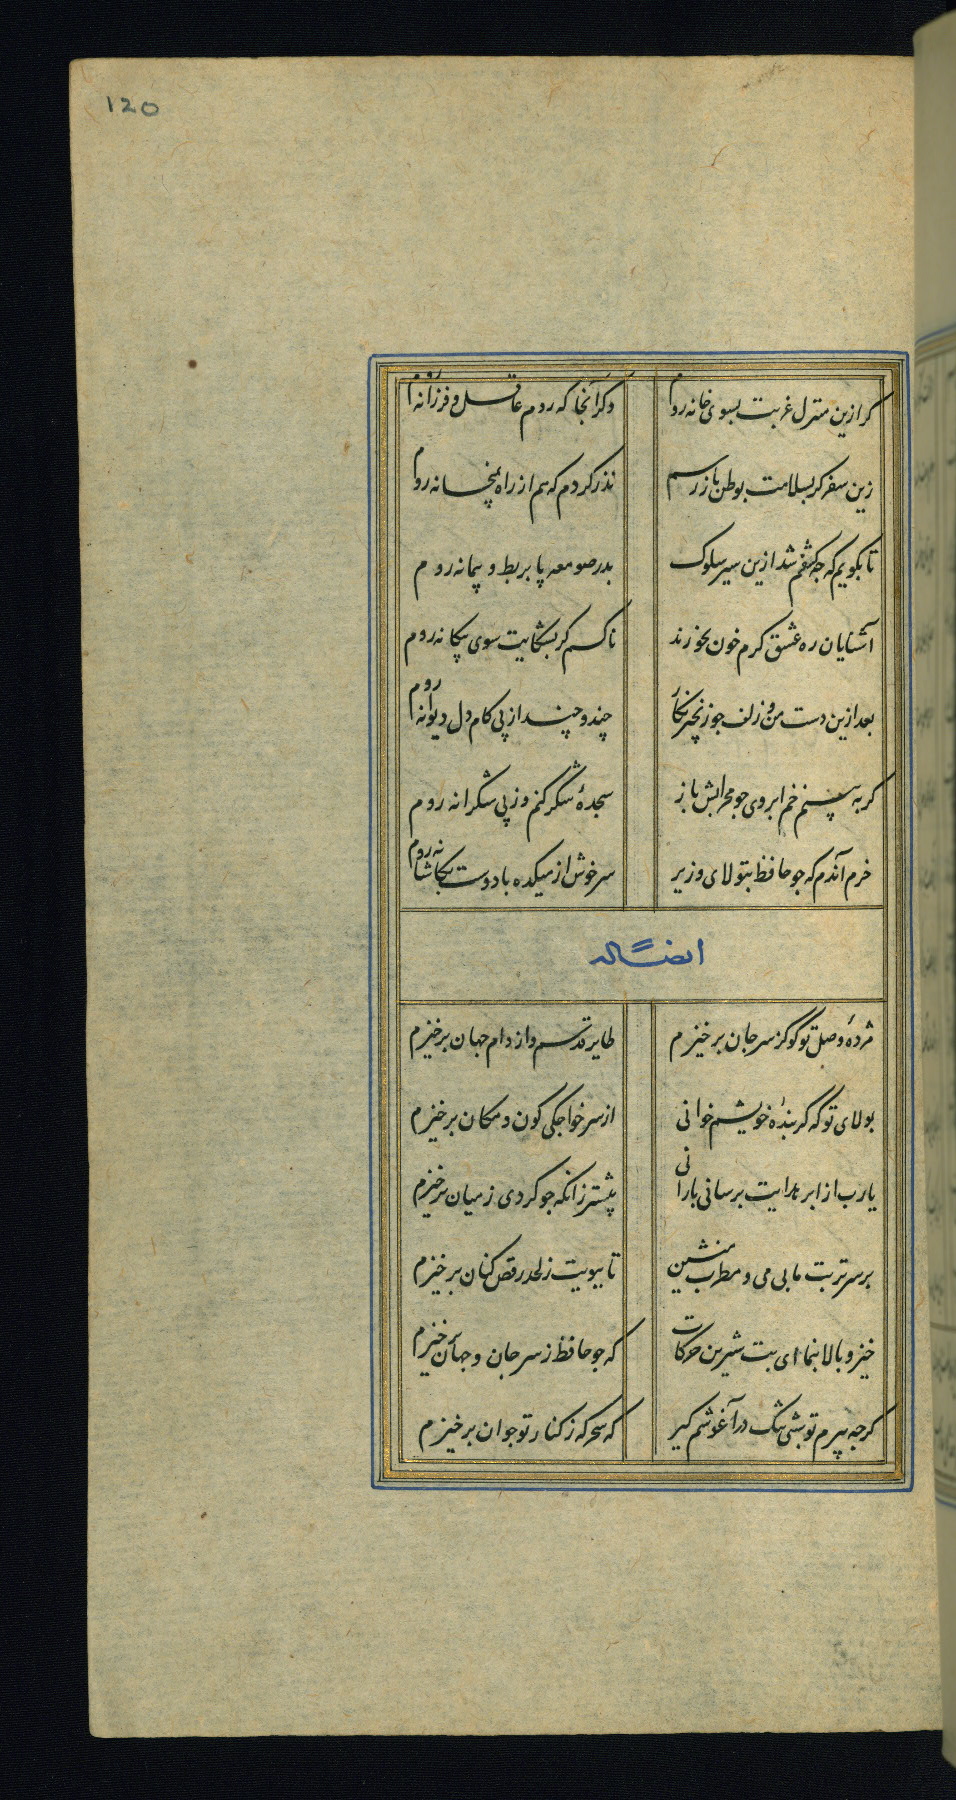 120
کر ازین منزل غربت بسوی خانه روم وکر آنجا که روم عاقل و فرزانه روم
زین سفر کر بسلامت بوطن باز رسم نذر کردم که هم از راه بمیخانه روم
تا بکویم که چه کشفم شد ازین سیر سلوک بدر صومعه با بربط و پیمانه روم
آشنایان ره عشق کرم خون بخورند ناکسم کر بشکایت سوی بیکانه روم
بعد ازین دست من و زلف جو زنجیر نکار چند و چند از پی کام دل دیوانه روم
کر به بینم خم ابروی جو محرابش باز سجدهٔ شکر کنم وز پی شکرانه روم
خرم آندم که جو حافظ بتولای وزیر سرخوش از میکده با دوست بکاشانه روم
ایضاً له
مژدهٔ وصل تو کو کز سر جان برخیزم طایر قدسم و از دام جهان برخیزم
بولای تو که کر بندهٔ خویشم خوانی از سر خواجکی کون و مکان برخیزم
یا رب از ابر هدایت برسانی بارانی پیشتر زانکه جو کردی ز میان برخیزم
بر سر تربت ما بی می و مطرب منشین تا ببویت ز لحد رقص کنان برخیزم
خیز و بالا بنما ای بت شیرین حرکات که جو حافظ ز سر جان و جهان برخیزم
کرجه پیرم تو شبی تنک در آغوشم کیر که سحرکه ز کنار تو جوان برخیزم